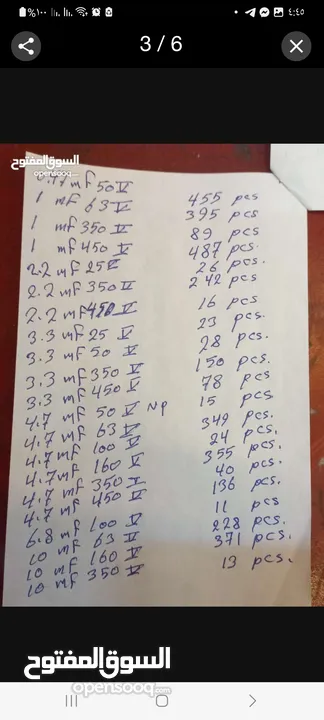 %١٠٠ ٤:٤٥
3 / 6
السوق المفتوح
opensooq.com
0.47 mf 50 V 455 pcs
1 mf 63 V 395 pcs
1 mf 350 V 89 pcs
1 mf 450 V 487 pcs.
2.2 mf 25 V 26 pcs.
2.2 mf 350 V 242 pcs
2.2 mf 450 V 16 pcs
3.3 mf 25 V 23 pcs.
3.3 mf 50 V 28 pcs.
3.3 mf 350 V 150 pcs.
3.3 mf 450 V 78 pcs
4.7 mf 50 V NP 15 pcs.
4.7 mf 63 V 349 pcs.
4.7 mf 100 V 24 pcs.
4.7 mf 160 V 355 pcs.
4.7 mf 350 V 40 pcs.
4.7 mf 450 V 136 pcs.
6.8 mf 100 V 11 pcs
10 mf 63 V 228 pcs.
10 mf 160 V 371 pcs.
10 mf 350 V 13 pcs.
السوق المفتوح
opensooq.com